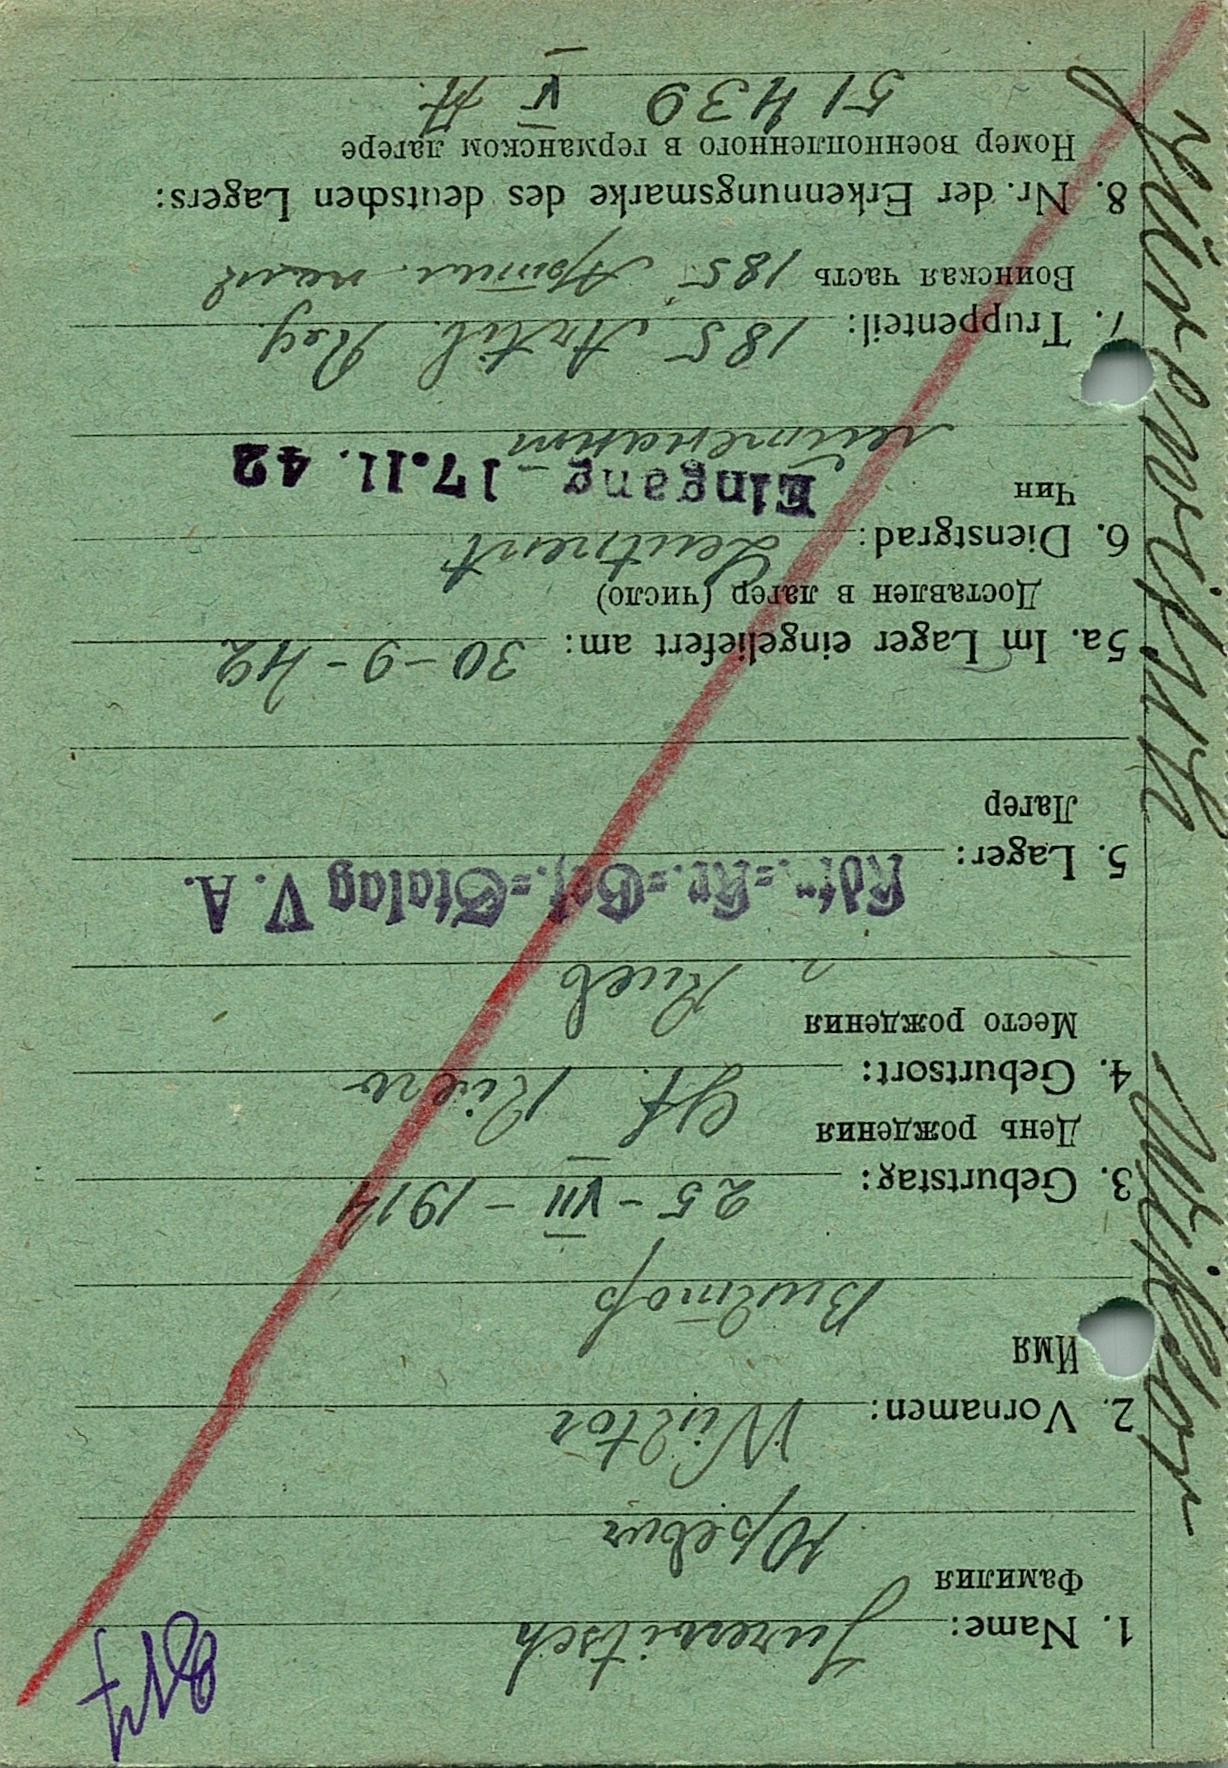 1. Name: Jurewitsch
Фамилия
Юревич
2. Vornamen: Wiktor
Имя
Виктор
3. Geburtstag: 25-VII-1914
День рождения
4. Geburtsort: Gt. Kiew
Место рождения
г. Киев
5. Lager: Kdtr.=Kr.=Gef.=Stalag V. A.
Лагер
5a. Im Lager eingeliefert am: 30-9-42
Доставлен в лагер (число)
6. Dienstgrad: Leutnent
Чин
Eingang - 17.11.42
лейтенант
7. Truppenteil: 185 Artil. Reg.
Воинская часть 185 Артил. полк
8. Nr. der Erkennungsmarke des deutschen Lagers:
Номер военнопленного в германском лагере
51430 V A.
Wiktor Jurewitsch